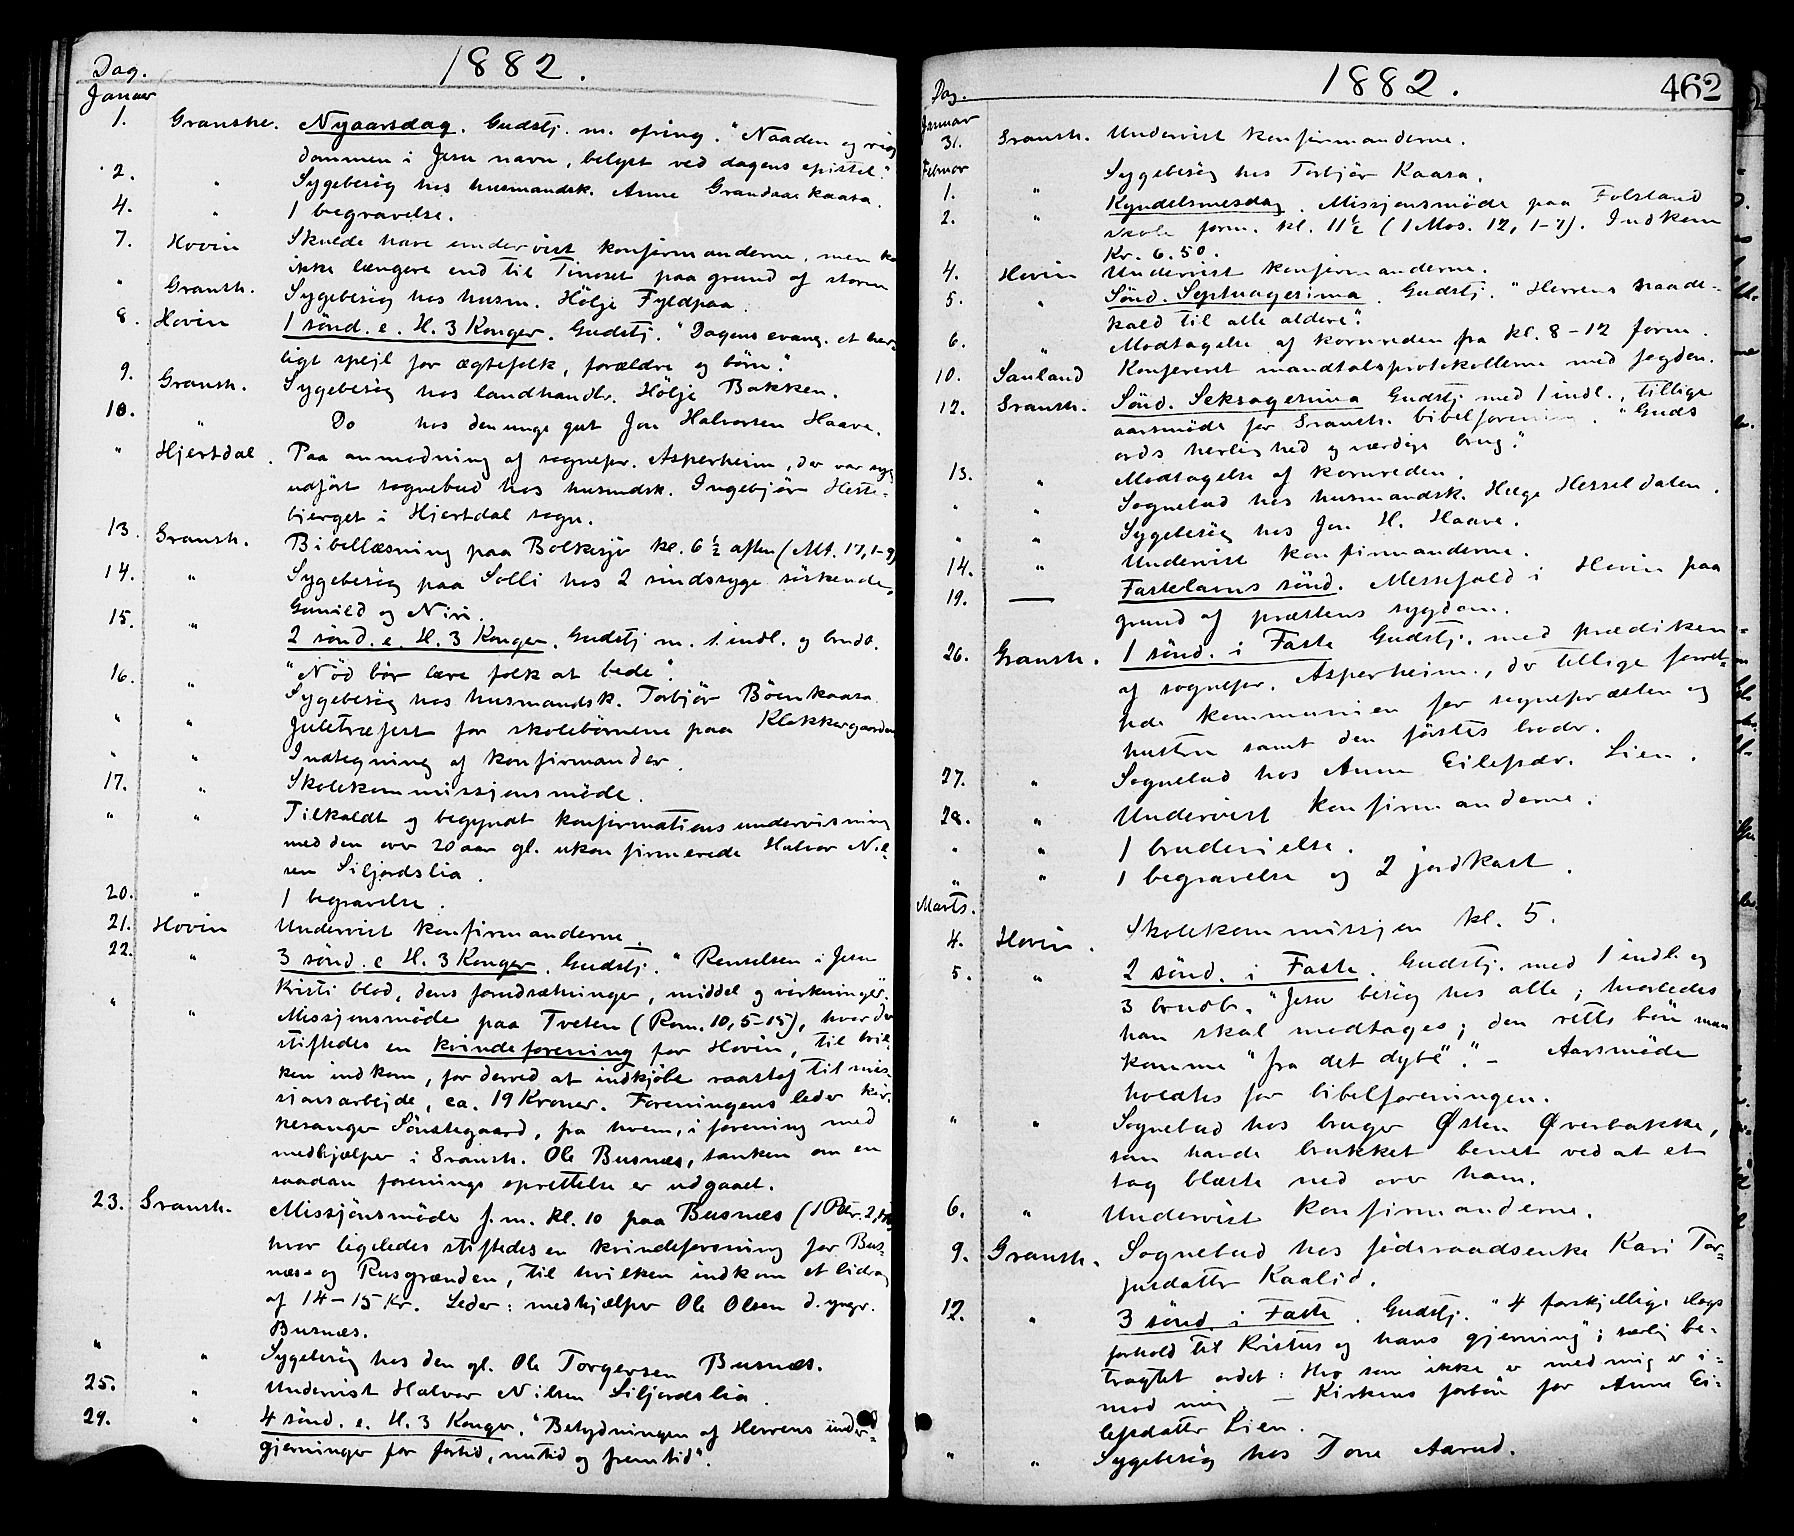 1882.
Dag.
Januar
1. Granshe. Nyaarsdag. Gudstj. m. ofring. "Naaden og rig-
dommen i Jesu navn, belyst ved dagens epistel."
2. " Sygebesøg hos husmandsk. Anne Grandaaekaasa.
4. " 1 begravelse.
7. Hovin Skulde have undervist konfirmanderne, men kom
ikke længere end til Tinoset paa grund af storm
" Gransh. Sygebesøg hos husm. Hölje Fyldpaa.
8. Hovin 1 sönd. e. H. 3 Konger. Gudstj. "Dagens evang. et her-
ligt spejl for ægtefolk, forældre og börn."
9. Gransh. Sygebesøg hos landhandlr. Hölje Bakken.
10. " Do hos den unge gut Jon Halvorsen Haave.
" Hjertdal. Paa anmodning af sognepr. Asperheim, der var syg,
udført sognebud hos husmdsk. Ingebjör Heste-
bjerget i Hjertdal sogn.
13. Gransh. Bibellæsning paa Bolkesjø kl. 6½ aften (Mt. 17, 1-9)
14. " Sygebesøg paa Solli hos 2 sindssyge søskende,
Gunild og Niri.
15. " 2 sönd. e. H. 3 Konger. Gudstj m. 1 indl. og brudv.
"Nød bör lære folk at bede".
16. " Sygebesøg hos husmandsk. Torbjör Böenkaasa
" " Juletræfest for skolebørnene paa Klokkergaarden
" " Indtegning af konfirmander.
17. " Skolekommissjonsmøde.
" " Tilkaldt og begyndt konfirmationsundervisning
med den over 20 aar gl. ukonfirmerede Halvor Nil-
sen Siljordslia.
20. " 1 begravelse.
21. Hovin Undervist konfirmanderne.
22. " 3 sönd. e H. 3 Konger. Gudstj. "Renselsen i Jesu
Kristi blod, dens forudsætninger, middel og virkninger.
" " Missjonsmøde paa Tveten (Rom. 10, 5-15), hvor der
stiftedes en kvindeforening for Hovin, til hvil-
ken indkom, for derved at indkjöbe raastof til mis-
sionsarbejde, ca. 19 Kroner. Foreningens leder kir-
kesanger Sönstegaard, fra hvem, i forening med
medhjælper i Gransh. Ole Busnæs, tanken om en
saadan forenings oprettelse er udgaaet.
23. Gransh. Missjonsmøde f. m. kl. 10 paa Busnæs (1 Petr. 2,
hvor ligeledes stiftedes en kvindeforening for Bus-
næs- og Rusgrænden, til hvilken indkom et bidrag
af 14-15 Kr. Leder: medhjælper Ole Olsen d. yngr.
Busnæs.
" " Sygebesøg hos den gl. Ole Torgersen Busnæs.
25. " Undervist Halvor Nilsen Siljordslia.
29. " 4 sönd. e. H. 3 Konger. "Betydningen af Herrens under-
gjerninger for fortid, nutid og fremtid".
1882.
462
Dag.
Januar
31. Gransh. Undervist konfirmanderne.
Februar
1. " Sygebesøg hos Torbjör Kaasa.
2. " Kyndelsmesdag. Missjonsmøde paa Folsland
skole form. kl. 11½ (1 Mos. 12, 1-7). Indkom
Kr. 6.50.
4. Hovin Undervist konfirmanderne.
5. " Sönd. Septuagesima. Gudstj. "Herrens naade-
kald til alle aldere".
6. " Modtagelse af kornreden fra kl. 8-12 form.
10. Sauland Konfereret mandtalsprotokollerne med fogden.
12. Gransh. Sönd. Seksagesima Gudstj med 1 indl., tillige
aarsmøde for Gransh. bibelforening. "Guds
ords herlighed og værdige brug."
13. " Modtagelse af kornreden.
" " Sognebud hos husmandsk. Helge Hesseldalen.
" " Sygebesøg hos Jon H. Haave.
14. " Undervist konfirmanderne.
19. — Fastelavns sönd. Messefald i Hovin paa
grund af præstens sygdom.
26. Gransh. 1 sönd. i Faste Gudstj. med prædiken
af sognepr. Asperheim, der tillige forret-
tede kommunien for sognepræsten og
hustru samt den förstes broder.
27. " Sognebud hos Anne Eilefsdr. Lien.
28. " Undervist konfirmanderne.
" " 1 brudevielse.
" " 1 begravelse og 2 jordkast.
Marts.
4. Hovin. Skolekommissjon kl. 5.
5. " 2 sönd. i Faste. Gudstj. med 1 indl. og
3 brudv. "Jesu besøg hos alle; hvorledes
han skal modtages; den rette bön maa
komme "fra det dybe"." — Aarsmøde
holdtes for bibelforeningen.
" " Sognebud hos bruger Østen Øverbakke,
som havde brukket benet ved at et
tag blæste ned over ham.
6. " Undervist konfirmanderne.
9. Gransh. Sognebud hos føderaadsenke Kari Tor-
jusdatter Kaalid.
12. " 3 sönd. i Faste. Gudstj. "4 forskjellige slags
forhold til Kristus og hans gjerning"; særlig be-
tragtet ordet: Hvo som ikke er med mig er i-
mod mig. — Kirkens forbön for Anne Ei-
lefsdatter Lien.
" " Sygebesøg hos Tone Aarud.